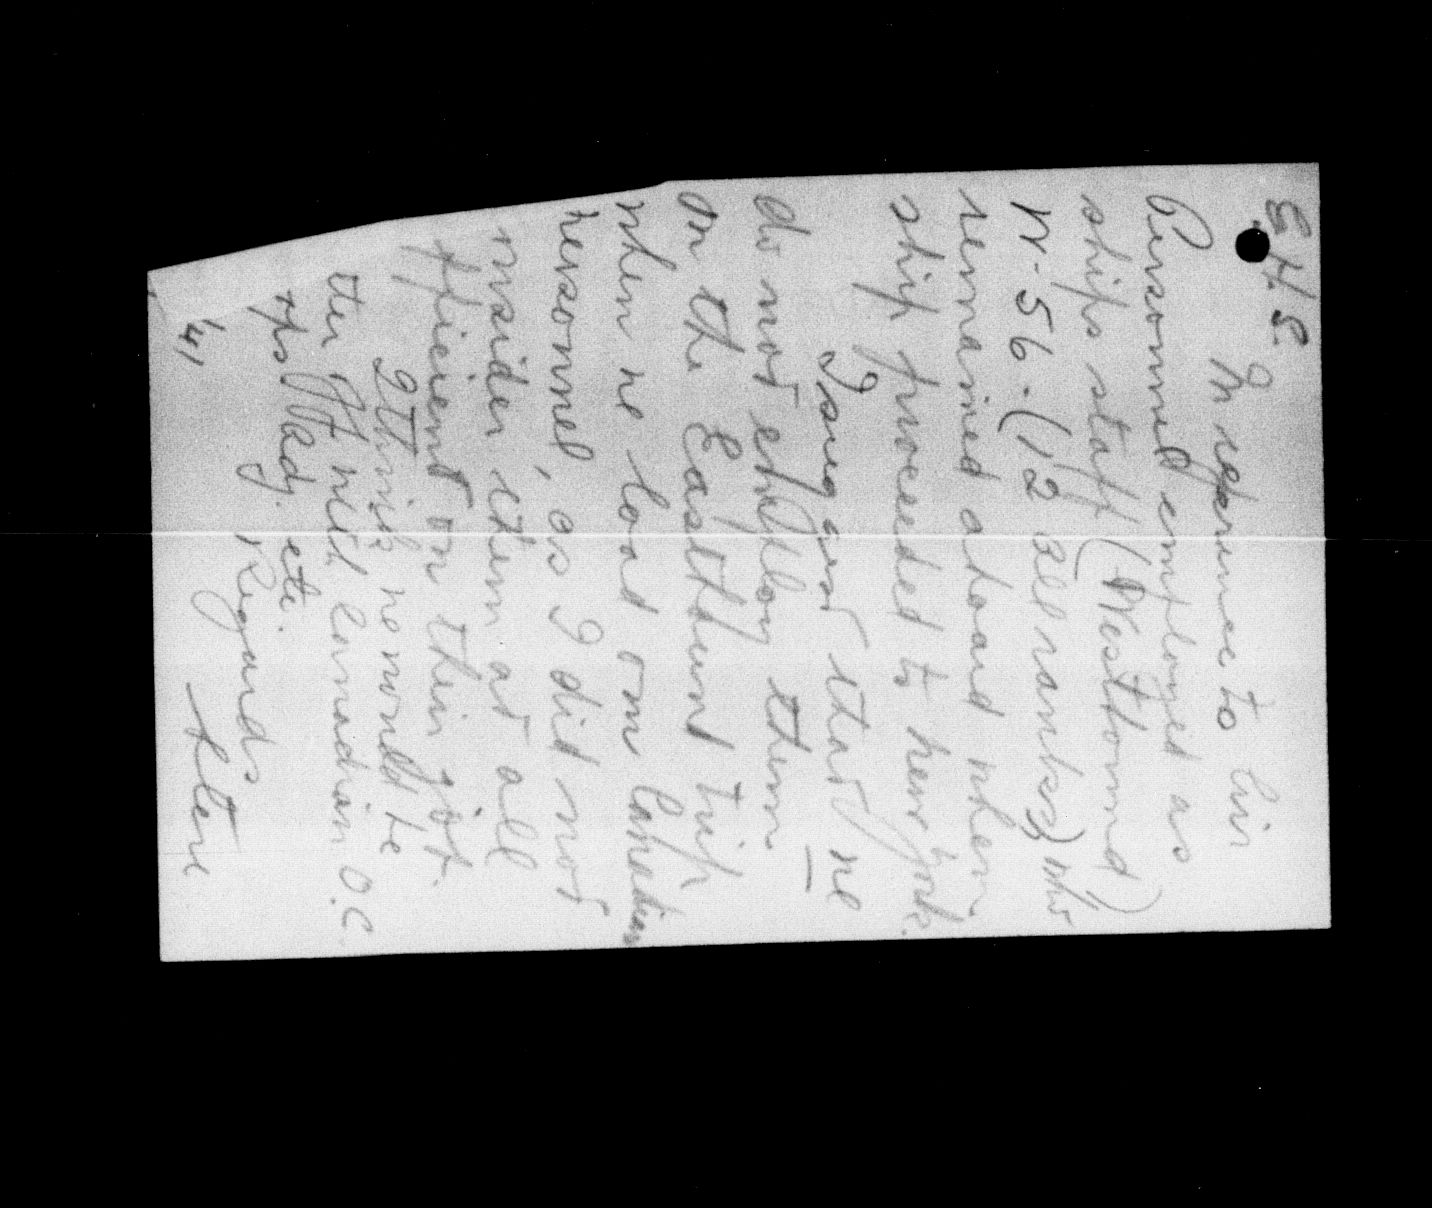 E.H.S.
In reference to Air
Personnel employed as
ships staff (Westbound)
W-56. (12 all ranks) who
remained aboard when
ship proceeded to New York.
I suggest that we
do not employ them
on the Eastbound trip
when we load our Canadian
personnel, as I did not
consider them at all
efficient on their job.
I think we would be
better off with Canadian O.C.
tps Adj. etc.
Regards